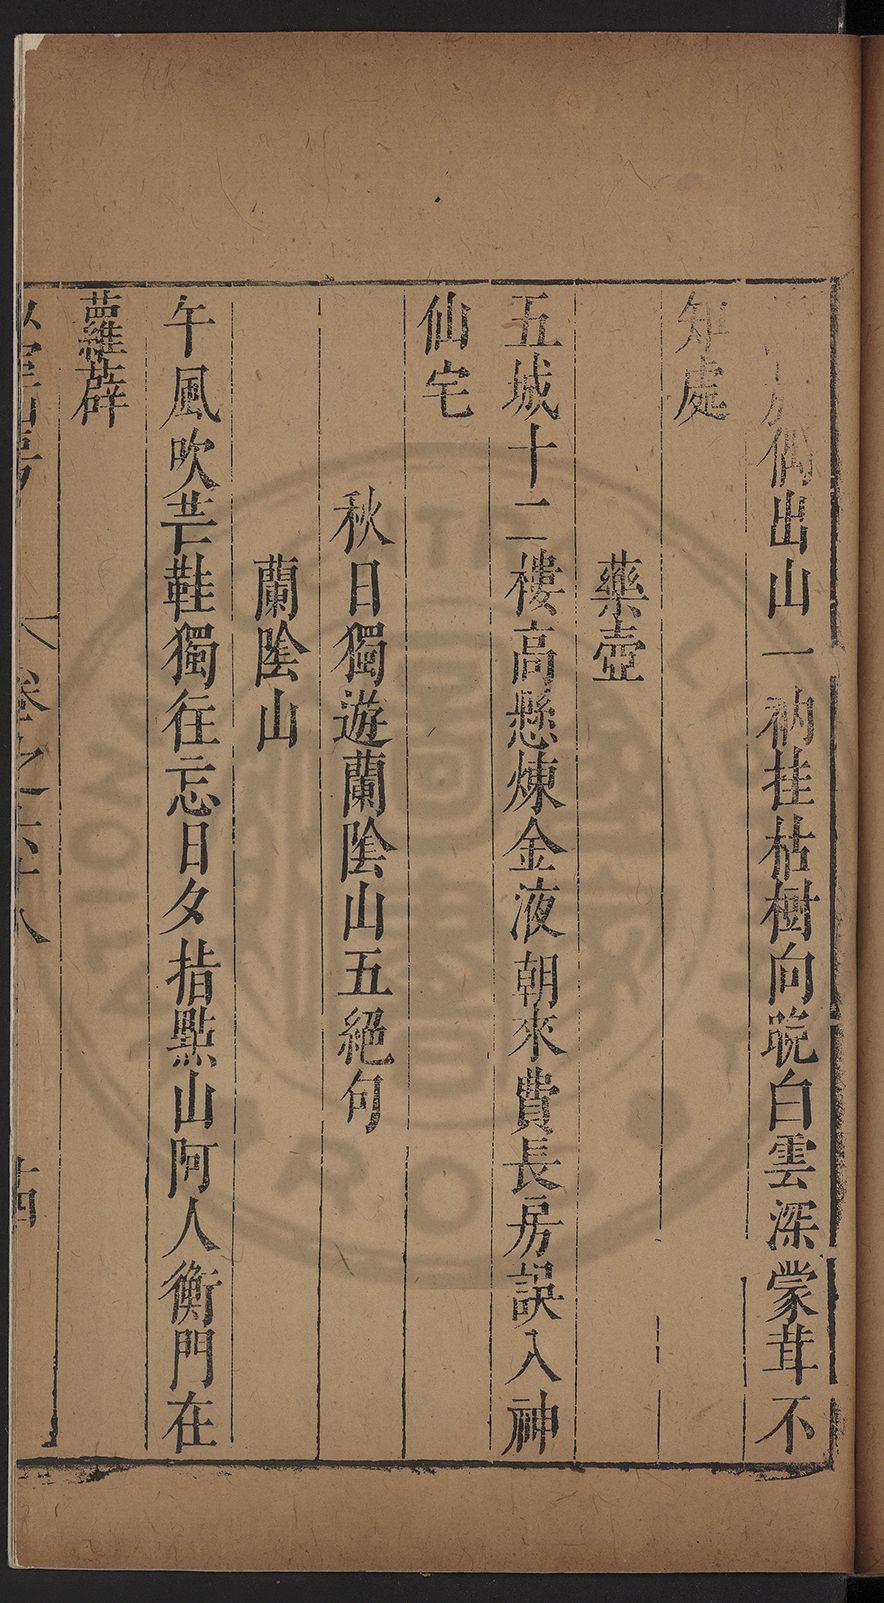 偶出山一衲挂枯樹向晥白雲深蒙茸不
知處
藥壺
五城十二樓高懸煉金液朝來費長房誤入神
仙宅
秋日獨遊蘭陰山五絕句
蘭陰山
午風吹芒鞋獨往忘日夕指點山阿人衡門在
蘿薜